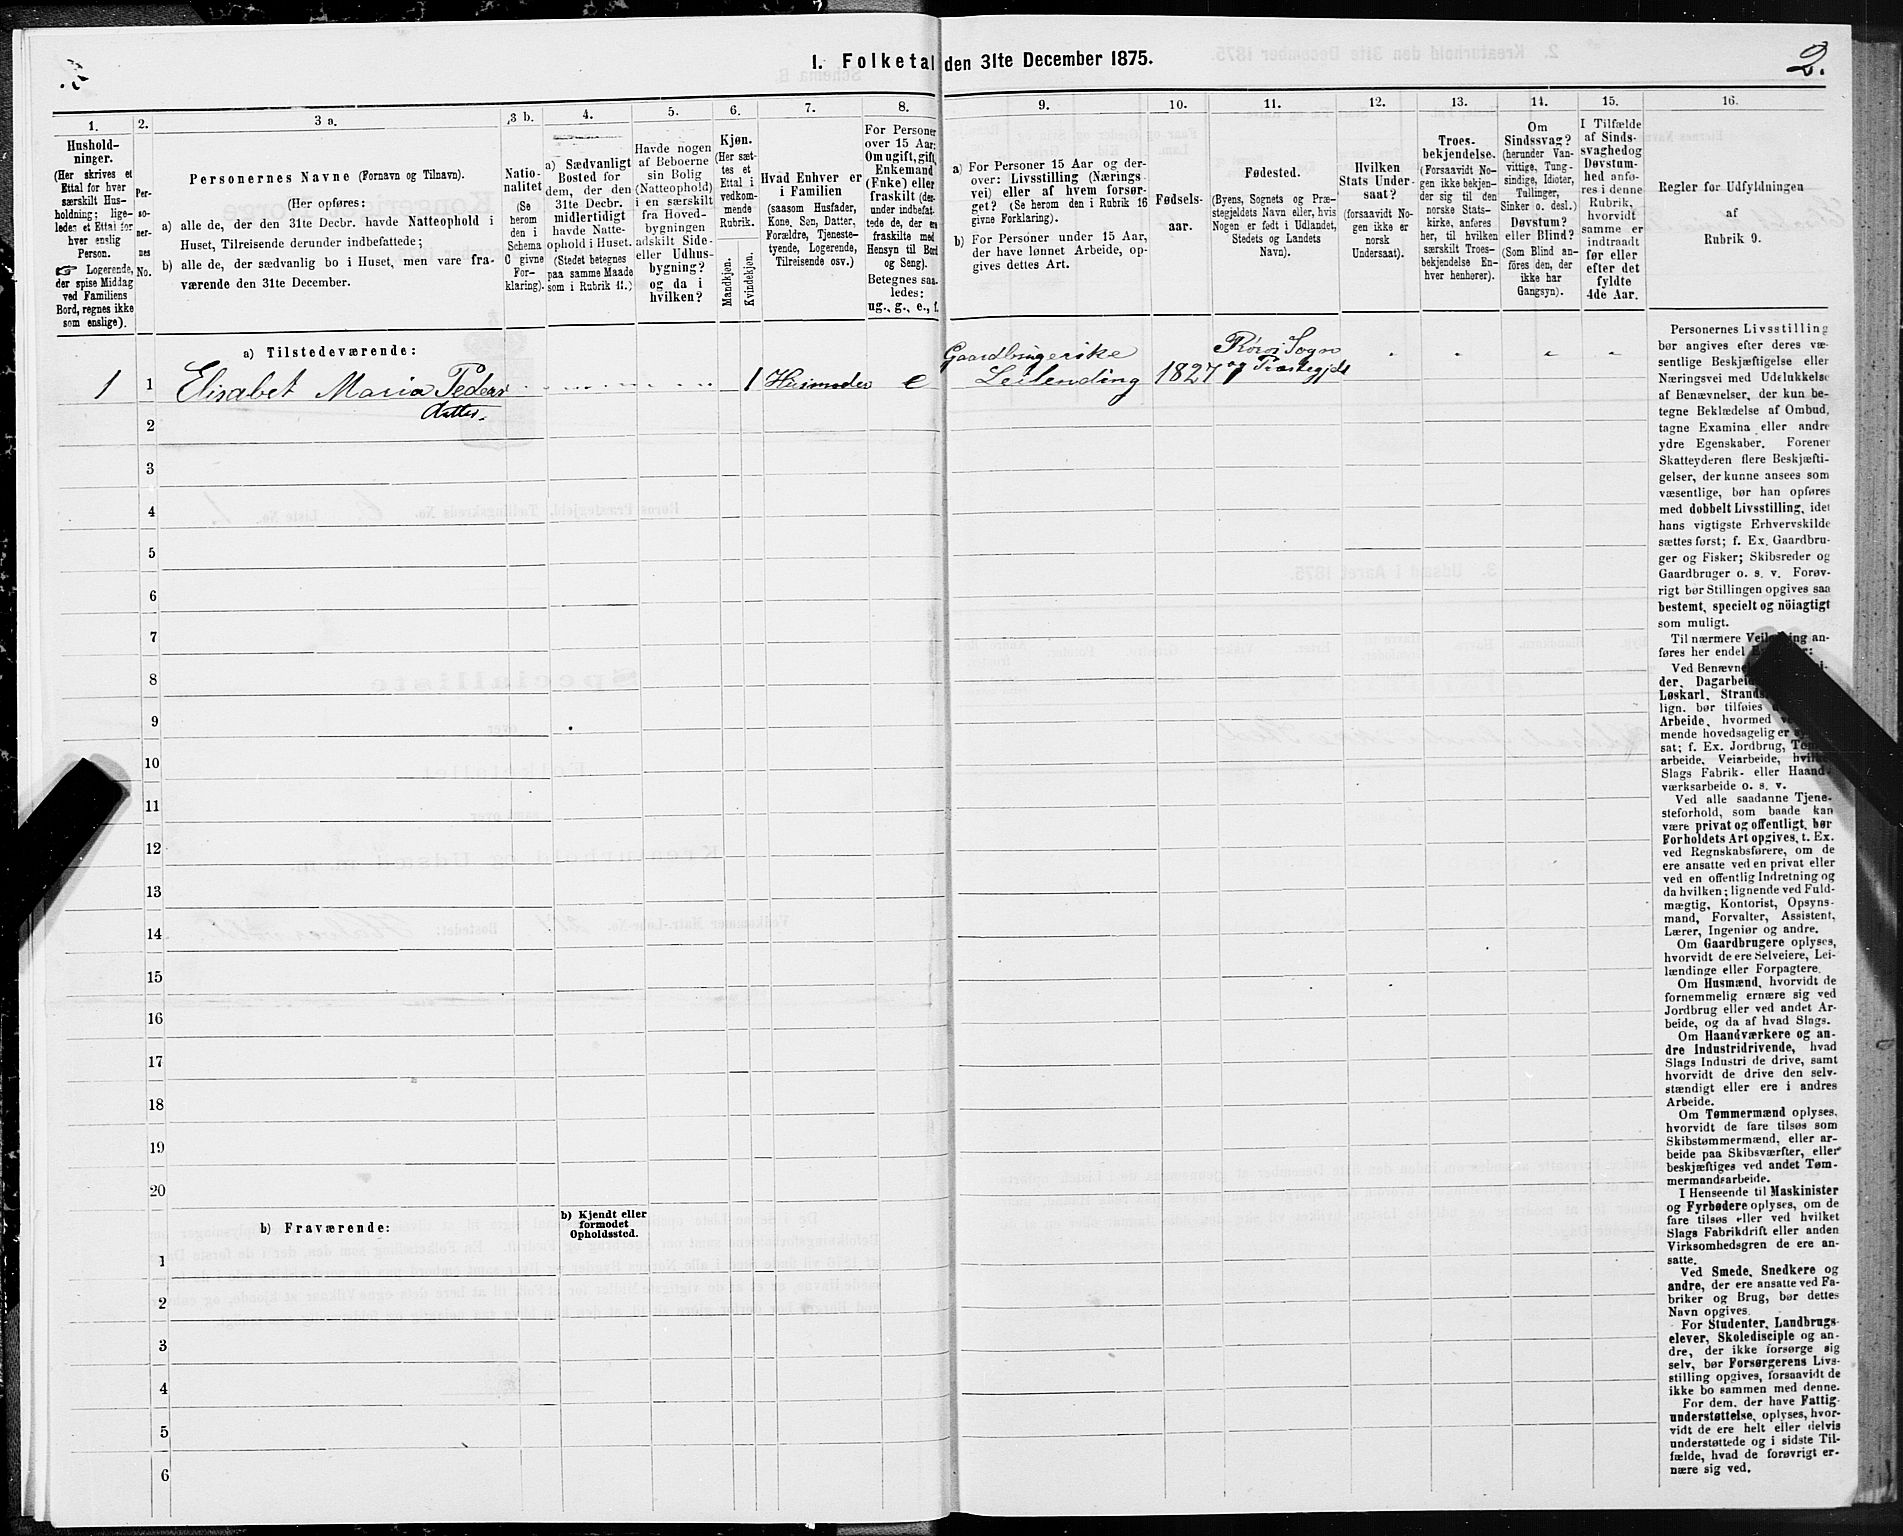 I. Folketal den 31te December 1875.
2.
1.
2.
3 a.
3 b.
4.
5.
6.
7.
8.
9.
10.
11.
12.
13.
14.
15.
16.
Hushold-
ninger.
(Her skrives et
Ettal for hver
særskilt Hus-
holdning; lige-
ledes et Ettal for
hver enslig
Person.
☞ Logerende,
der spise Middag
ved Familiens
Bord, regnes ikke
som enslige).
Per-
so-
ner-
nes
No.
Personernes Navne (Fornavn og Tilnavn).
(Her opføres:
a) alle de, der den 31te Decbr. havde Natteophold i
Huset, Tilreisende derunder indbefattede;
b) alle de, der sædvanlig bo i Huset, men vare fra-
værende den 31te December.
Natio-
nalitet
(Se
herom
den i
Schema
C givne
For-
klaring).
a) Sædvanligt
Bosted for
dem, der den
31te Decbr.
midlertidigt
havde Natte-
ophold i Huset.
(Stedet betegnes
paa samme Maade
som i Rubrik 11.)
Havde nogen
af Beboerne
sin Bolig
(Natteophold)
i en særskilt
fra Hoved-
bygningen
adskilt Side-
eller Udhus-
bygning?
og da i
hvilken?
Kjøn.
(Her sæt-
tes et
Ettal i
vedkom-
mende
Rubrik.
Mandkjøn.
Kvindekjøn.
Hvad Enhver er
i Familien
(saasom Husfader,
Kone, Søn, Datter,
Forældre, Tjeneste-
tyende, Logerende,
Tilreisende osv.)
For Personer
over 15 Aar:
Om ugift, gift,
Enkemand
(Enke) eller
fraskilt (der-
under indbefat-
tede de, der ere
fraskilte med
Hensyn til Bord
og Seng).
Betegnes saa-
ledes:
ug., g., e., f.
a) For Personer 15 Aar og der-
over: Livsstilling (Nærings-
vei) eller af hvem forsør-
get? (Se herom den i Rubrik 16
givne Forklaring).
b) For Personer under 15 Aar,
der have lønnet Arbeide, op-
gives dettes Art.
Fødsels-
aar.
Fødested.
(Byens, Sognets og Præ-
stegjeldets Navn eller, hvis
Nogen er født i Udlandet,
Stedets og Landets
Navn).
Hvilken
Stats Under-
saat?
(forsaavidt No-
gen ikke er
norsk
Undersaat).
Troes-
bekjendelse.
(Forsaavidt No-
gen ikke bekjen-
der sig til den
norske Stats-
kirke, anføres
her, til hvilken
særskilt Troes-
bekjendelse En-
hver henhører).
Om
Sindssvag?
(herunder Van-
vittige, Tung-
sindige, Idioter,
Tullinger,
Sinker o. desl.)
Døvstum?
eller Blind?
(Som Blind an-
føres den, der
ikke har
Gangsyn).
I Tilfælde
af Sinds-
svaghed og
Døvstum-
hed anfø-
res i denne
Rubrik,
hvorvidt
samme er
indtraadt
før eller
efter det
fyldte
4de Aar.
Regler for Udfyldningen
af
Rubrik 9.
a) Tilstedeværende:
Gaardbrugerske Røros Sogn
1 1 Elisabet Maria Peders 1 Husmoder e Leilending 1827 og Præstegjeld
datter
2
3
4
5
6
7
8
9
10
11
12
13
14
15
16
17
18
19
20
b) Fraværende:
b) Kjendt eller
formodet
Opholdssted.
1
2
3
4
5
6
Personernes Livsstilling
bør angives efter deres væ-
sentlige Beskjæftigelse eller
Næringsvei med Udelukkelse
af Benævnelser, der kun be-
tegne Beklædelse af Ombud,
tagne Examina eller andre
ydre Egenskaber. Forener
Skatteyderen flere Beskjæfti-
gelser, der kunne ansees som
væsentlige, bør han opføres
med dobbelt Livsstilling, idet
hans vigtigste Erhvervskilde
sættes først; f. Ex. Gaardbru-
ger og Fisker; Skibsreder og
Gaardbruger o. s. v. Forøv-
rigt bør Stillingen opgives saa
bestemt, specielt og nöiagtigt
som muligt.
Til nærmere Veiledning an-
føres her endel
Ved
der, Dagarbei
Løskarl, Strands
lign. bør tilføies
Arbeide, hvormed
mende hovedsagelig er
sat; f. Ex. Jordbrug,
arbeide, Veiarbeide, hvilke
Slags Fabrik- eller Haand-
værksarbeide o. s. v.
Ved alle saadanne Tjene-
steforhold, som baade kan
være privat og offentligt, bør
Forholdets Art opgives, t. Ex.
ved Regnskabsførere, om de
ere ansatte ved en privat eller
ved en offentlig Indretning og
da hvilken; lignende ved Fuld-
mægtig, Kontorist, Opsyns-
mand, Forvalter, Assistent,
Lærer, Ingeniør og andre.
Om Gaardbrugere oplyses,
hvorvidt de ere Selveiere, Lei-
lændinge eller Forpagtere.
Om Husmænd, hvorvidt de
fornemmelig ernære sig ved
Jordbrug eller ved andet Ar-
beide, og da af hvad Slags.
Om Haandværkere og an-
dre Industridrivende, hvad
Slags Industri de drive, samt
hvorvidt de drive den selv-
stændigt eller ere i andres
Arbeide.
Om Tømmermænd oplyses,
hvorvidt de fare tilsøs som
Skibstømmermænd, eller ar-
beide paa Skibsværfter, eller
beskjæftiges ved andet Tøm-
mermandsarbeide.
I Henseende til Maskinister
og Fyrbødere oplyses, om de
fare tilsøs eller ved hvilket
Slags Fabrikdrift eller anden
Virksomhedsgren de ere an-
satte.
Ved Smede, Snedkere og
andre, der ere ansatte ved Fa-
briker og Brug, bør dettes
Navn opgives.
For Studenter, Landbrugs-
elever, Skoledisciple og an-
dre, der ikke forsørge sig
selv, bør Forsørgerens Livs-
stilling opgives, forsaavidt de
ikke bo sammen med denne.
For dem, der have Fattig-
understøttelse, oplyses, hvor-
vidt de ere helt eller delvis
understøttede og i sidste Til-
fælde, hvad de forøvrigt er-
nære sig ved.